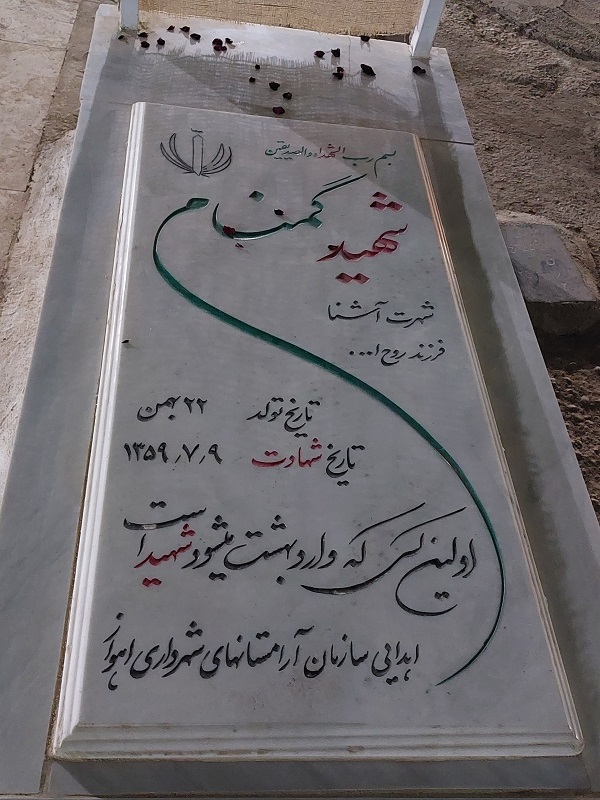 بسم رب الشهداء والصدیقین
شهید گمنام
شهرت آشنا
فرزند روح ا...
تاریخ تولد ۲۲ بهمن
تاریخ شهادت ۱۳۵۹٫۷٫۹
اولین کسی که وارد بهشت میشود شهید است
اهدایی سازمان آرامستانهای شهرداری اهواز